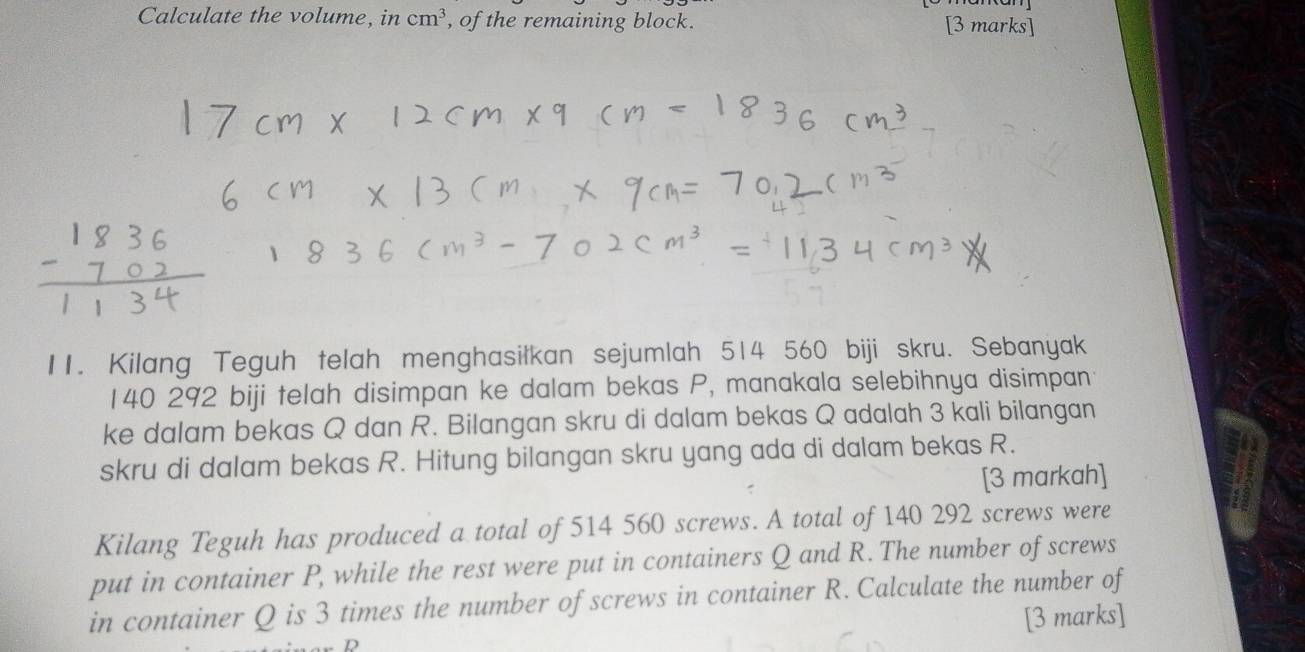 Calculate the volume, in cm³, of the remaining block.
[3 marks]
17 cm x 12 cm x 9 cm = 1836 cm³
6 cm x 13 cm x 9 cm = 702 cm³
1836 cm³ - 702 cm³ = 1134 cm³
1836
- 702
1134
11. Kilang Teguh telah menghasilkan sejumlah 514 560 biji skru. Sebanyak
140 292 biji telah disimpan ke dalam bekas P, manakala selebihnya disimpan
ke dalam bekas Q dan R. Bilangan skru di dalam bekas Q adalah 3 kali bilangan
skru di dalam bekas R. Hitung bilangan skru yang ada di dalam bekas R.
[3 markah]
Kilang Teguh has produced a total of 514 560 screws. A total of 140 292 screws were
put in container P, while the rest were put in containers Q and R. The number of screws
in container Q is 3 times the number of screws in container R. Calculate the number of
[3 marks]